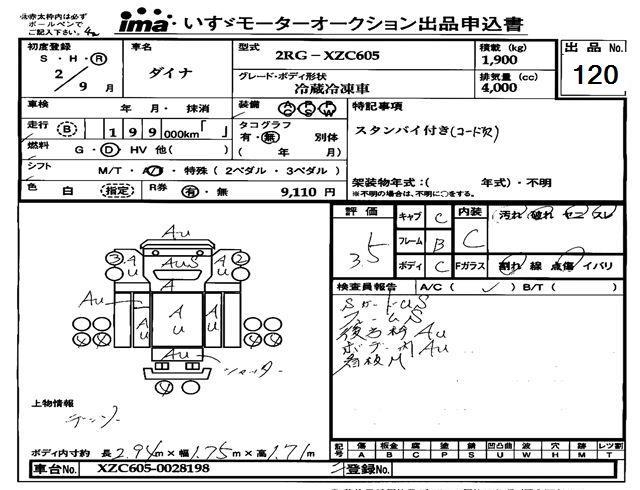 ※赤太枠内は必ず
ボールペンで
ご記入下さい。
ima いすゞモーターオークション出品申込書
初度登録 S・H・R 2/9 月
車名 ダイナ
型式 2RG－XZC605
グレード・ボディ形状 冷蔵冷凍車
積載 (kg) 1,900
排気量 (cc) 4,000
出品 No. 120
車検 年 月・ 抹消
装備 AC PS PW
特記事項
スタンバイ付き(コード欠)
走行 B 199 000km「 」
タコグラフ 有・無 別体 ( 年 月)
燃料 G・D・HV 他( )
シフト M/T・A/T・特殊 (2ペダル・3ペダル)
架装物年式:( 年式)・不明
※不明の場合は、不明に○をする。
色 白 指定 R券 有・無 9,110 円
評価 3.5
キャブ C 内装 C 汚れ 破れ ヤニ スレ
フレーム B
ボディ C Fガラス 割れ 線 点傷 イバリ
検査員報告 A/C( ✓ ) B/T( )
SガードUS
フレームS
ボデー内 AU
看板 M
AU
③ AU AUS AU ②
A
AU AU AU AU
AU シャッター
上物情報
ボディ内寸約 長 2.94m × 幅 1.75m × 高 1.71m
記号 傷 A 板金 B 腐 C 塗 P 錆 S 凹凸曲 U 波 W 穴 H 跡 M レツ割 T
車台No. XZC605-0028198
登録No.